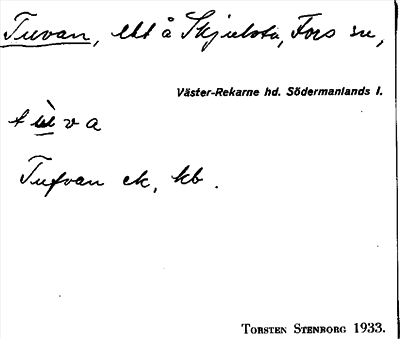 Tuvan, ett å Skjulsta, Fors sn,
Väster-Rekarne hd. Södermanlands l.
tùva
Tufvan ek, kb.
TORSTEN STENBORG 1933.